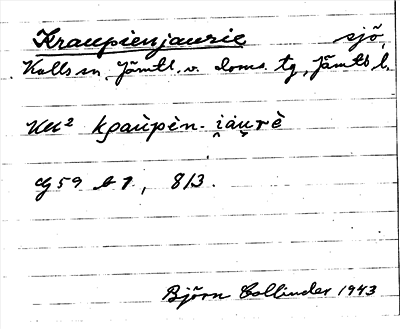 Kraupienjaurie sjö,
Kalls sn, Jämtl. v. doms. tg, Jämtl. l.
kraùpèn-i̯áu̯rè
59 b 7, 813.
Björn Collinder 1943